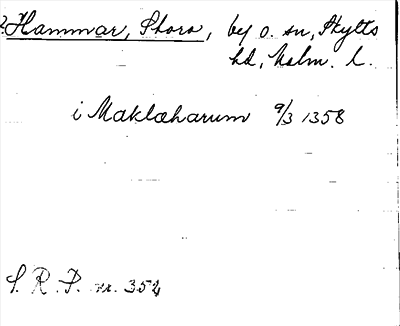 Hammar, Stora, by o. sn, Skytts
hd, Malm. l.
i Maklæharum 9/3 1358
S. R. P. nr. 352